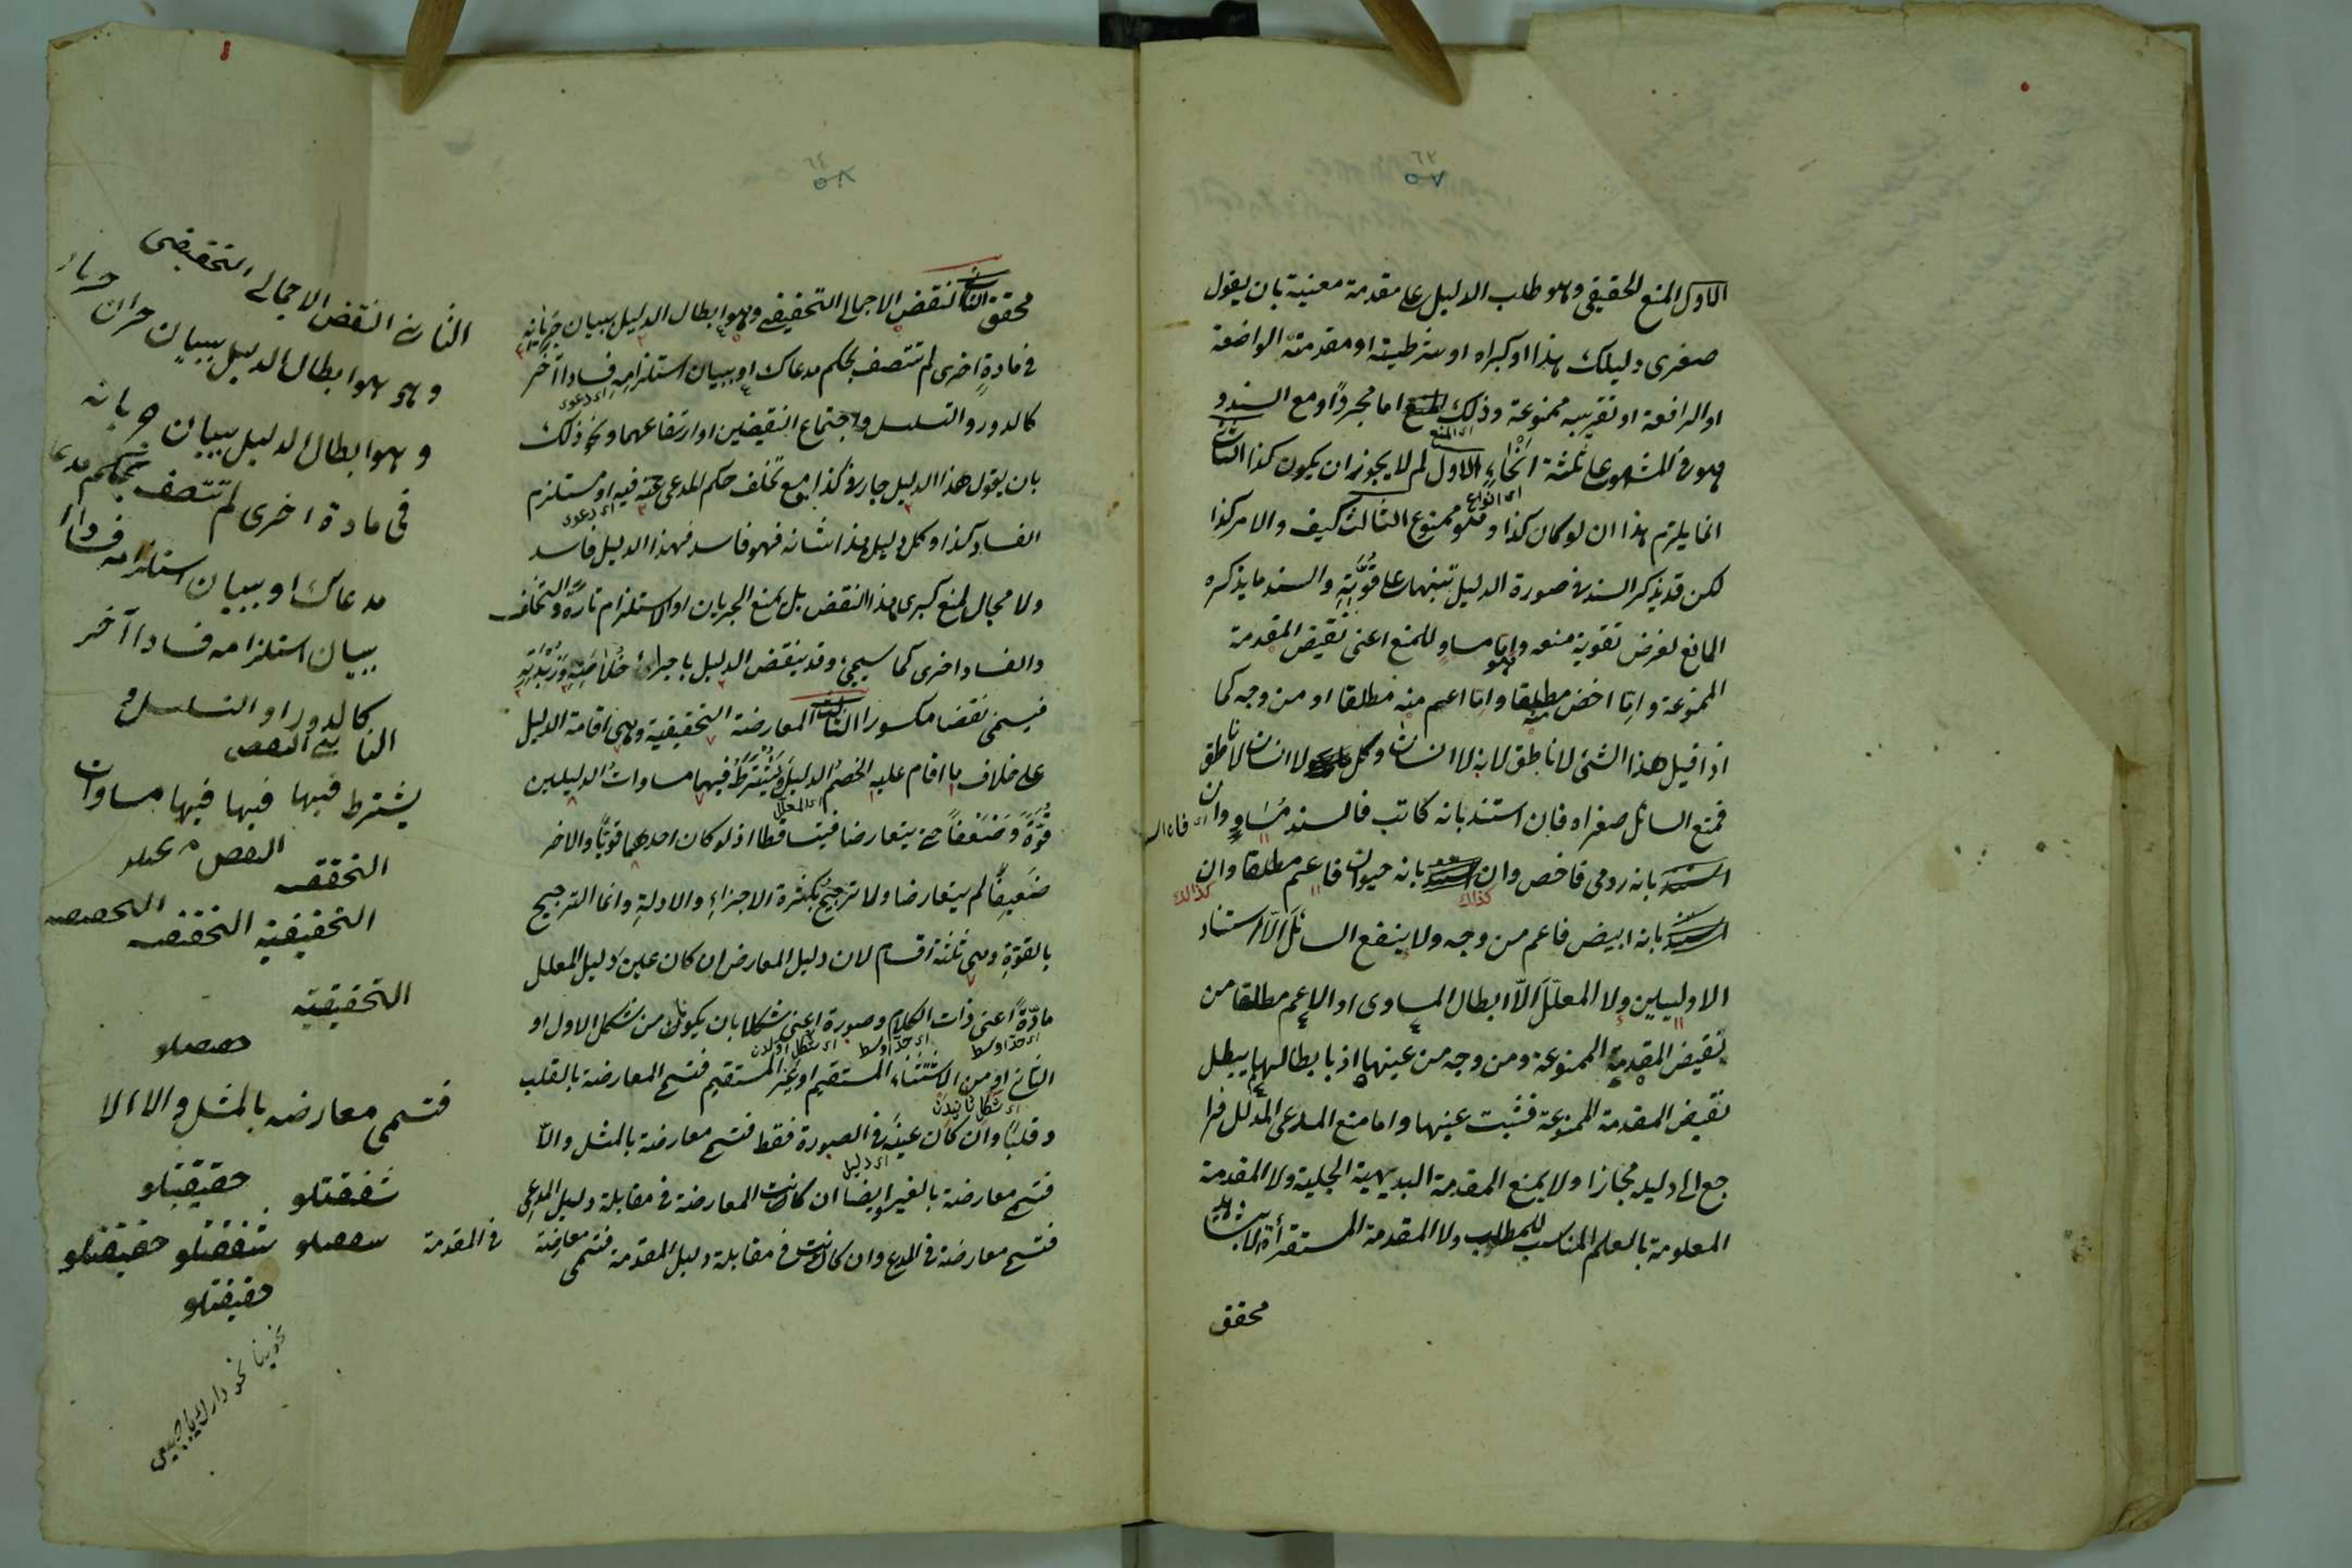 ٦٣
٥٧
الاول المنع الحقيقى وهو طلب الدليل على مقدمة معينة بان يقول
صغرى دليلك هذا او كبراه او شرطيته او مقدمته الواضعة
او الرافعة او تقريبه ممنوعة وذلك المنع اما مجردًا او مع السند و
اى المنع
هو فى المشهور على ثلثة انْحَاءٍ الاول لم لا يجوز ان يكون كذا الثانى
اى انواع
انما يلزم هذا ان لو كان كذا وهو ممنوع الثالث كيف والامر كذا
لكن قد يذكر السند فى صورة الدليل تنبيها على قُوَّتِهِ والسند ما يذكره
المانع لغرض تقوية منعه وهو اما مساوٍ للمنع اعنى نقيض المقدمة
الممنوعة واما اخص منه مطلقا واما اعم منه مطلقا او من وجه كما
اذا قيل هذا الشئ لا ناطق لانه لا انسان وكل لا انسان لا ناطق
فمنع السائل صغراه فان استند بانه كاتب فالسند مُسَاوٍ وان
استند بانه رومى فاخص وان استند بانه حيوان فاعم مطلقا وان
كذالك
كذالك
استند بانه ابيض فاعم من وجه ولا ينفع السائل الّا استناد
الاوليين ولا المعلّل الّا ابطال المساوى او الاعم مطلقا من
نقيض المقدمة الممنوعة ومن وجه من عينها اذ بابطالهما يبطل
نقيض المقدمة الممنوعة فثبت عينها واما منع المدعى المدلل فرا
جع الى دليله مجازا ولا يمنع المقدمة البديهية الجلية ولا المقدمة
المعلومة بالعلم المناسب للمطلب ولا المقدمة المستقرأة
محقق
٦٤
٥٨
محقق الثانى النقض الاجمالى التحقيقى وهو ابطال الدليل ببيان جَرَيَانِهِ
فى مادةٍ اخرى لم تتصف بحكم مدعاك او ببيان استلزامِهِ فسادا آخر
اى دعوى
كالدور والتسلسل واجتماع النقيضين او ارتفاعهما ونحو ذلك
بان يقول هذا الدليل جار فى كذا مع تخلف حكم المدعى عنه فيه او مستلزم
اى دعوى
الفساد كذا وكل دليل هذا شانه فهو فاسد فهذا الدليل فاسد
ولا مجال لمنع كبرى هذا النقض بل يمنع الجريان او الاستلزام تارةً والتخلف
والفساد اخرى كما سيجئ وقد ينقض الدليل باجراء خُلَاصَتِهِ وَزُبْدَتِهِ
فيسمى نقضا مكسورا الثالث المعارضة التحقيقية وهى اقامة الدليل
على خلاف ما اقام عليه الخصمُ الدليلَ وَيُشْتَرَطُ فيها مساواتُ الدليلين
اى المعلل
قُوَّةً وَضَعْفًا حتى يتعارضا فيتساقطا اذ لو كان احدهما قويًّا والاخر
ضَعِيفًا لم يتعارضا ولا ترجيحَ بكثرة الاجزاءِ والادلةِ وانما الترجيح
بالقوّةِ وهى ثلثة اقسام لان دليل المعارض ان كان عين دليل المعلل
مادّةً اعنى ذات الكلام وصورة اعنى شكلا بان يكونا من شكل الاول او
اى حد اوسط
اى حد اوسط
اى شكل اولدن
الثانى او من الاستثناء المستقيم او غير المستقيم فتسمى المعارضة بالقلب
اى شكل ثانيدن
وقلبا وان كان عينه فى الصورة فقط فتسمى معارضة بالمثل والّا
اى دليل
فتسمى معارضة بالغير وايضا ان كانت المعارضة فى مقابلة دليل المدعى
فتسمى معارضة فى المدعى وان كانت فى مقابلة دليل المقدمة فتسمى معارضة
فى المقدمة
الثانى النقض الاجمالى التحقيقى
وهو هو ابطال الدليل ببيان
وهو ابطال الدليل ببيان جريانه
فى مادة اخرى لم تتصف بحكم مدعا
مدعاك او ببيان استلزامه فسادا
ببيان استلزامه فسادا آخر
كالدور او التسلسل و
يشترط فيها فيها فيها مساوات
التحقيقية
التحقيقية
فتسمى معارضه بالمثل والا الا
حقيقتلو
شفقتلو
شفقتلو حقيقتلو
حقيقتلو